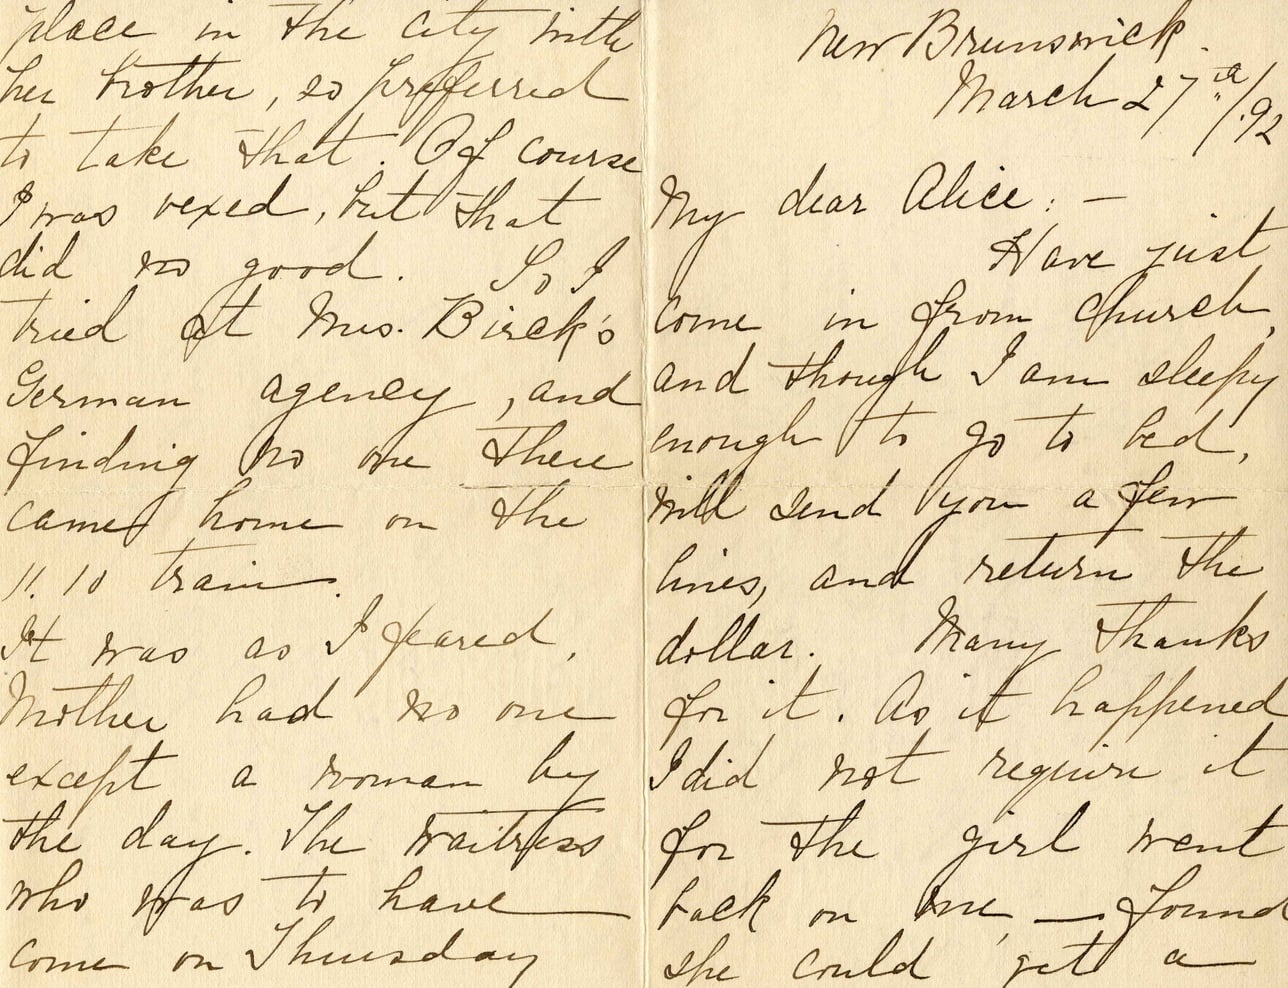 New Brunswick.
March 27th/92
My dear Alice: —
Have just
come in from church,
and though I am sleepy
enough to go to bed,
will send you a few
lines, and return the
dollar. Many thanks
for it. As it happened
I did not require it
for the girl went
back on me, — found
she could get a
place in the city with
her brother, so preferred
to take that. Of course
I was vexed, but that
did no good. So I
tried at Mrs. Birck's
German agency, and
finding no one there
came home on the
11.10 train.
It was as I feared,
Mother had no one
except a woman by
the day. The waitress
who was to have
come on Thursday